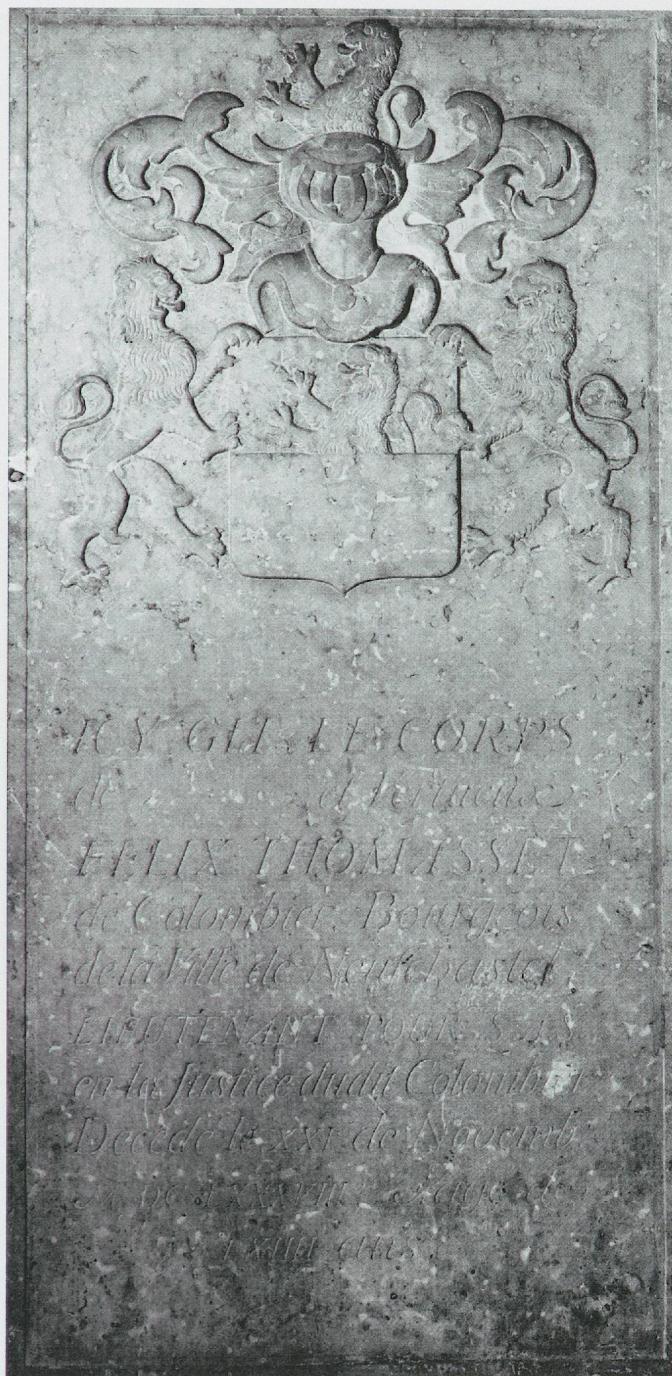 ICY GIT LE CORPS
de et Vertueux
FELIX THOMASSET
de Colombier, Bourgeois
de la Ville de Neufchastel
LIEUTENANT POUR S.A.S.
en la Justice dudit Colombier
Decedé le XXI de Novemb
LXIIII